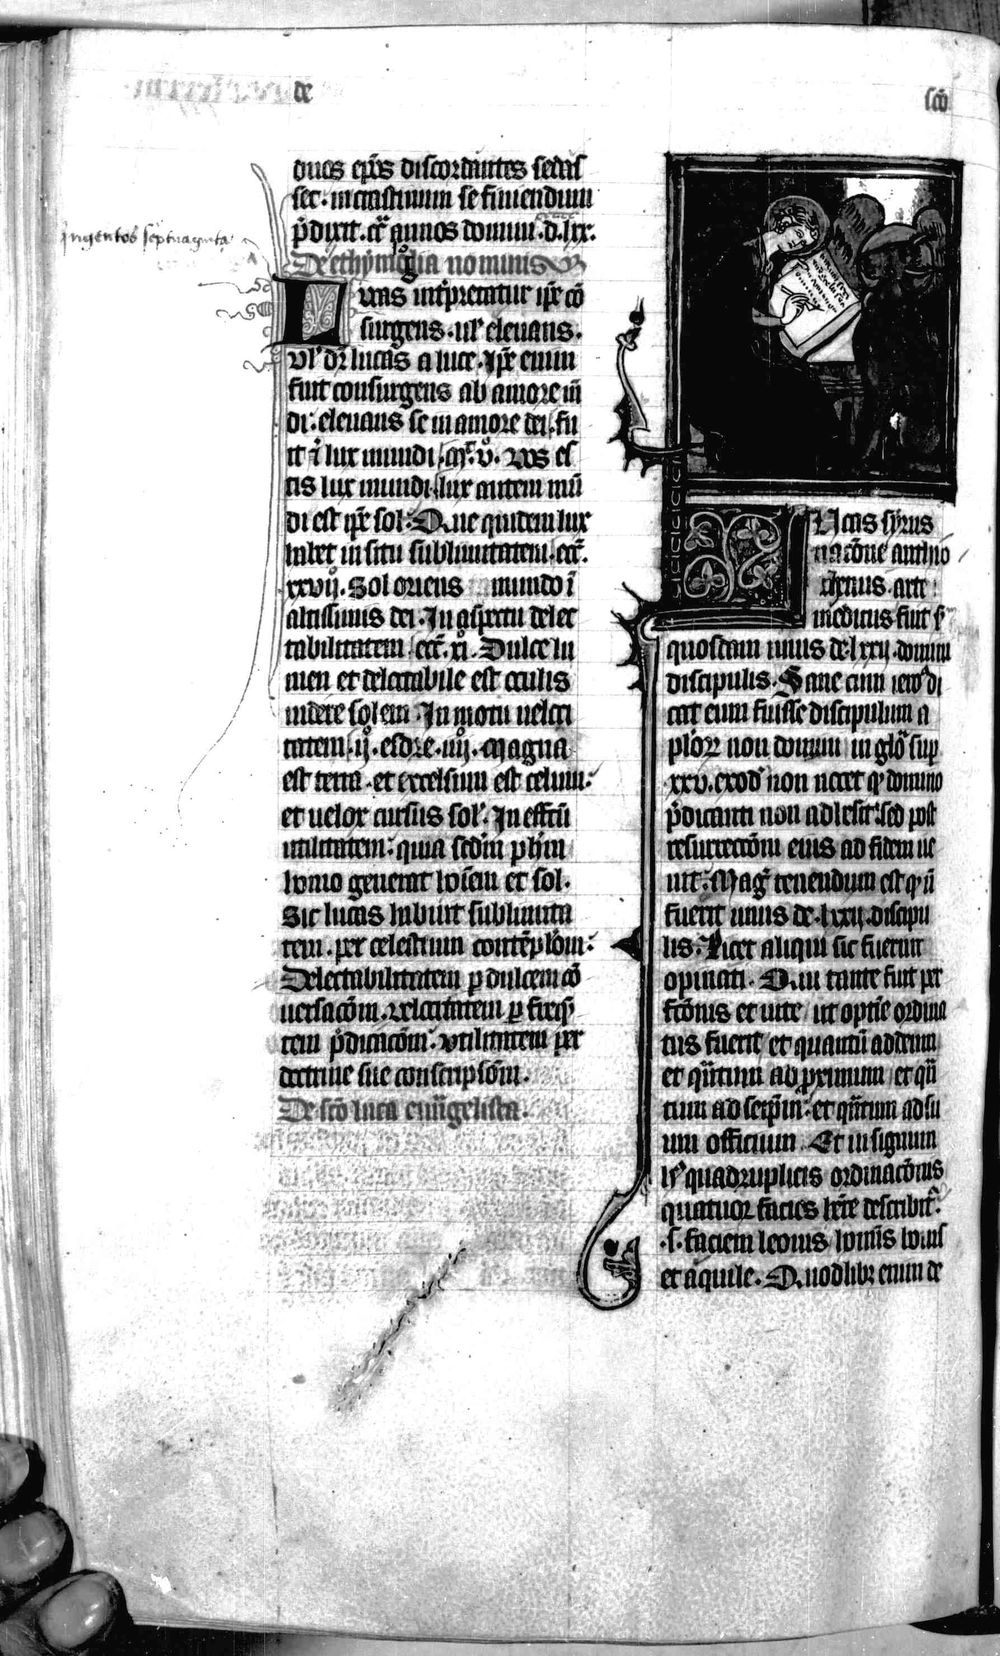 de
scō
duos ep̄os discordantes sedis
sec. in crastinum se finiendum
p̄dixit. cc̄ annos domini. d. lxx.
quingentos septuaginta
De ethymologia nominis
Lucas int̄pretatur ip̄e cō
surgens. ul' eleuans.
vl' dr̄ lucas a luce. Ip̄e enim
fuit consurgens ab amore mū
di: eleuans se in amore dei. fu
it ⁊ lux mundi. mͭ. v. vos es
tis lux mundi. lux autem mū
di est ip̄e sol. Que quidem lux
habet in situ sublimitatem. ecc̄.
xxvij. Sol oriens mundo ī
altissimis dei. In aspectu delec
tabilitatem. ecc̄. xi. Dulce lu
men et delectabile est oculis
uidere solem. In motu ueloci
tatem. ij. esdre. iiij. Magna
est terra. et excelsum est celum:
et uelox cursus sol'. In effcū
utilitatem: quia scd'm ph'm
homo generat hoīem et sol.
Sic lucas habuit sublimita
tem. per celestium contēplōm:
Delectabilitatem p dulcem cō
uersacōm. velocitatem p feruē
tem p̄dicacōm. vtilitatem per
doctrine sue conscripsōm.
De scō luca euāgelista.
Lucas syrus
nacōne anthio
chenus. arte
medicus fuit s'
quosdam unus de lxxij. domini
discipulis. Sane cum iero' di
cat eum fuisse discipulum a
pl'or̄ non domini in glo' sup
xxv. exod' non uocet qͥ domino
p̄dicanti non adhesit: sed post
resurreccōm eius ad fidem ue
nit: Mag̛ tenendum est qͥ nō
fuerit unus de lxxij. discipu
lis. Licet aliqui sic fuerunt
opinati. Qui tante fuit per
fcōnis et uite ut optīe ordina
tus fuerit et quantū ad deum
et q̄ntum ad proximum et q̄n
tum ad seip̄m. et q̄ntum ad su
um officium. Et in signum
h' quadruplicis ordinacōnis
quatuor facies hēre describit̄.
.s. faciem leonis homīs bouis
et aquile. Quodlibꝫ enim de